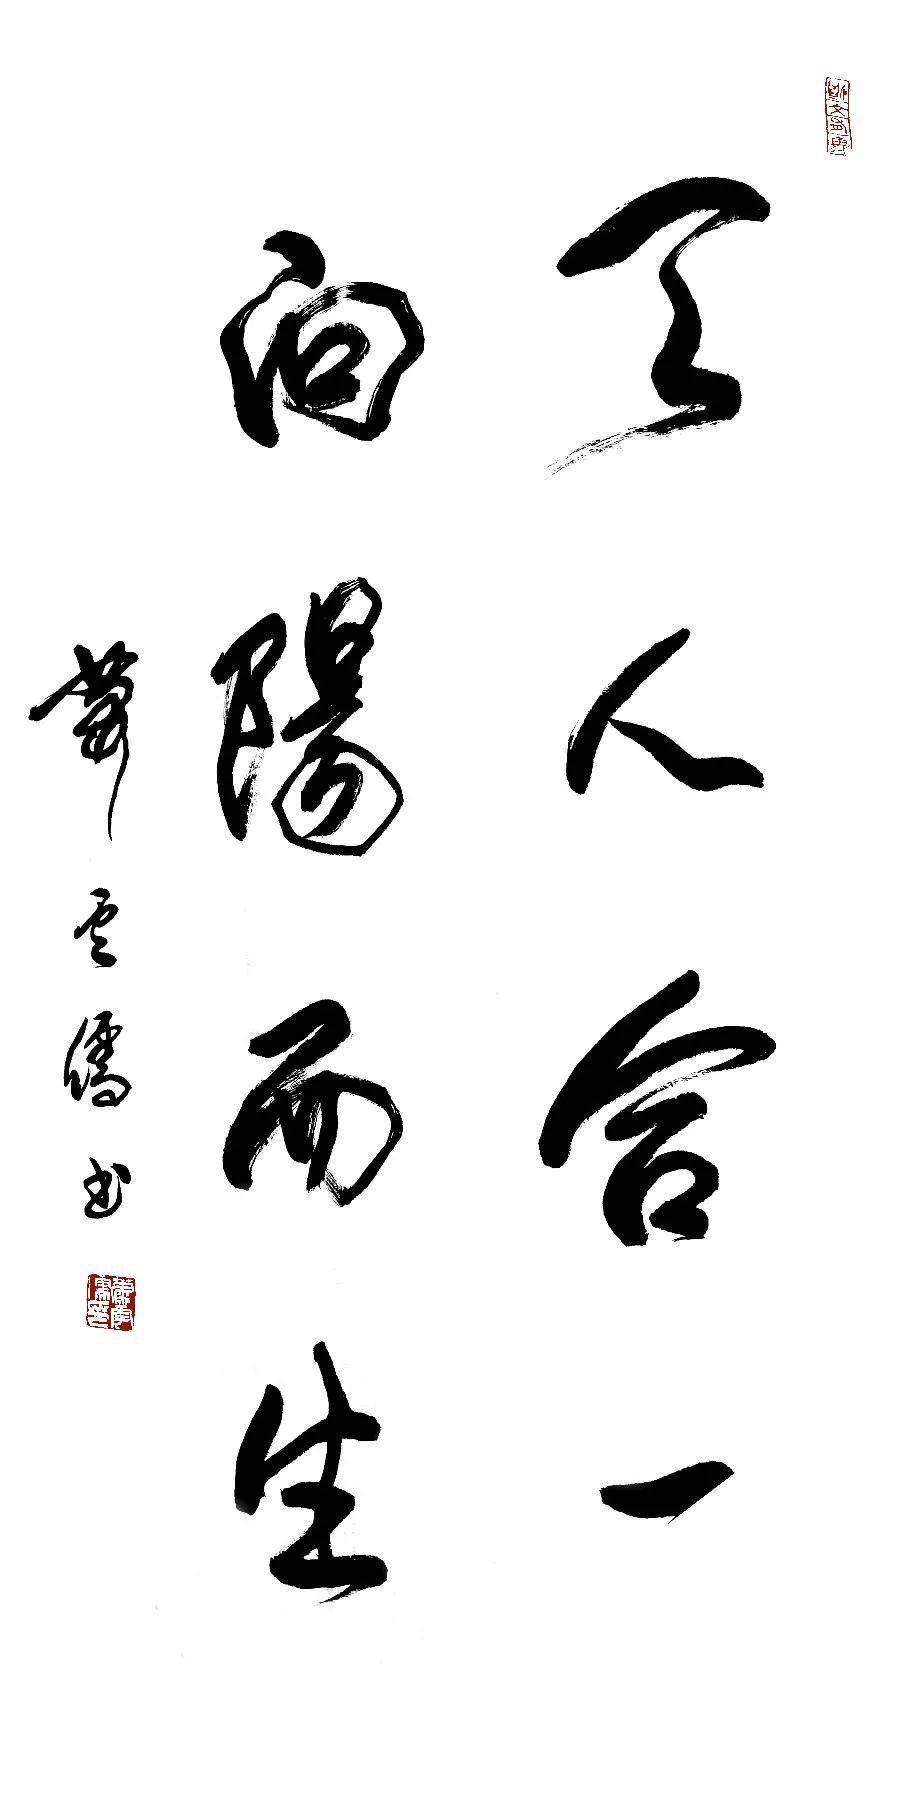 天人合一
向陽而生
云儒书